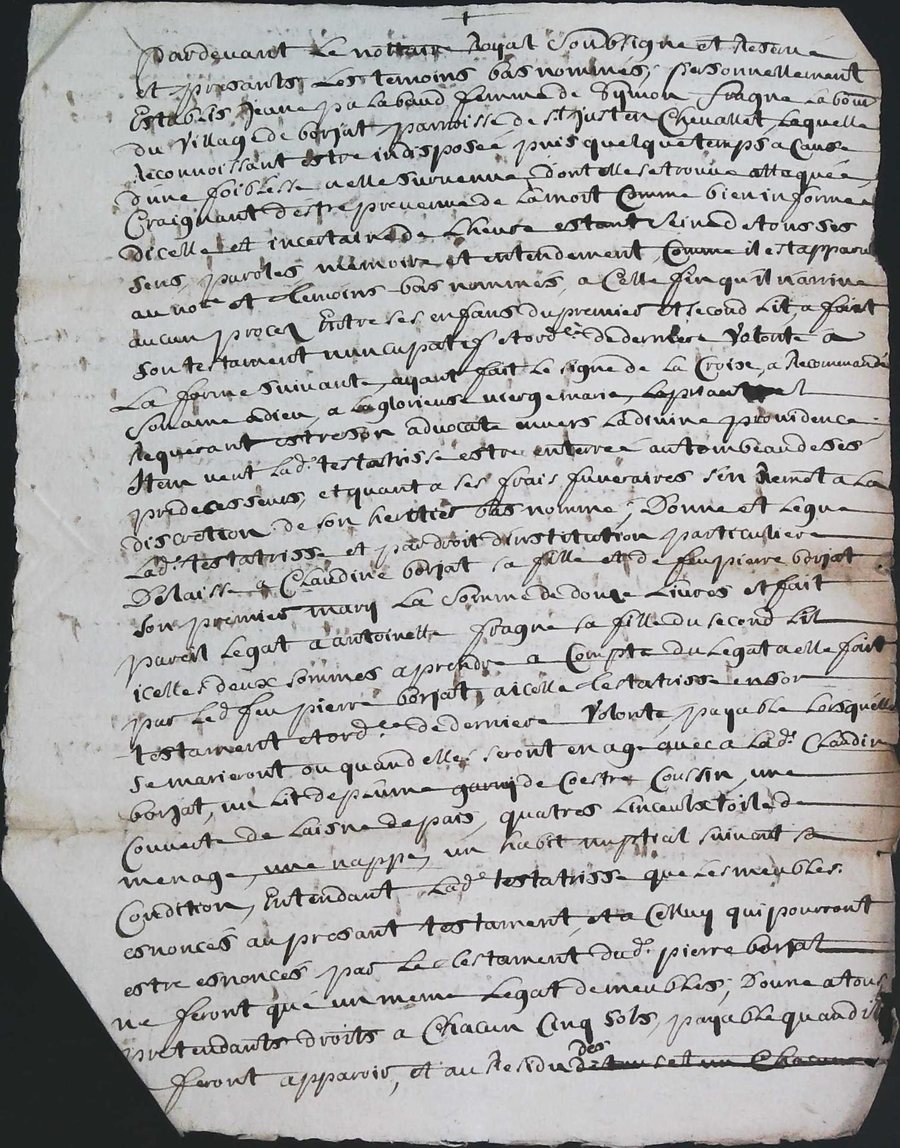 pardevant le nottaire Royal soubsigne et Reservé
et presants les temoins bas nommés, personnellement
establis Jeane palabaud femme de Symon fragne labour
du village de borjat parroisse de st Just en Chevallet, laquelle
Reconnoissant estre indisposée puis quelque temps a Cause
d'une foiblesse a elle survenue, dont elle se trouve attaquée,
Craignant d'estre prevenue de la mort Comme bien informée
dicelle et incertaine de l'heure estant de tous ses
sens, paroles memoire et entendement, Comme il est apparu
au nore et temoins bas nommés, a Celle fin qu'il n'arrive
aucun procez Entre ses enfans du premier et second lit, a fait
son testament nuncupatif et ordce de derniere volonté a
La forme suivante, ayant fait le signe de la Croix, a Recommandé
son ame a dieu, a la glorieuse vierge marie, la priant et
Requerant estre son advocate envers la divine providence
Item veut lad. testatrisse estre enterrée au tombeau de ses
predecesseurs, et quant a ses frais funeraires s'en Remet a la
discretion de son heritier bas nommé; Donne et legue
lad. testatrisse et par droit d'institution particuliere
Delaisse a Claudine borjat sa fille et de feu pierre borjat
son premier mary La somme de douze Livres et fait
pareil legat a antoinette fragne sa fille du second lit
icelles deux sommes a prendre a Compte du legat a elle fait
par led. feu pierre borjat a icelle testatrisse en son
testament et ordce de derniere volonté, payable lorsquelle
se marieront ou quand elles seront en age avec a lad. Claudine
borjat, un lit de plume garni de Coestre Coussin, une
Couverte de laisne de pais, quatres linceulx toile de
menage, une nappe, un habit nuptial suivant sa
Condition, Entendant lad. testatrisse que les meubles
esnoncés au present testament, et a Celluy qui pourront
estre esnoncés par le testament dud. pierre borjat
ne feront qué un meme legat de meubles; Donne a tous
pretendants droits a Chacun Cinq sols, payable quand ils
feront apparoir, et au Residu des